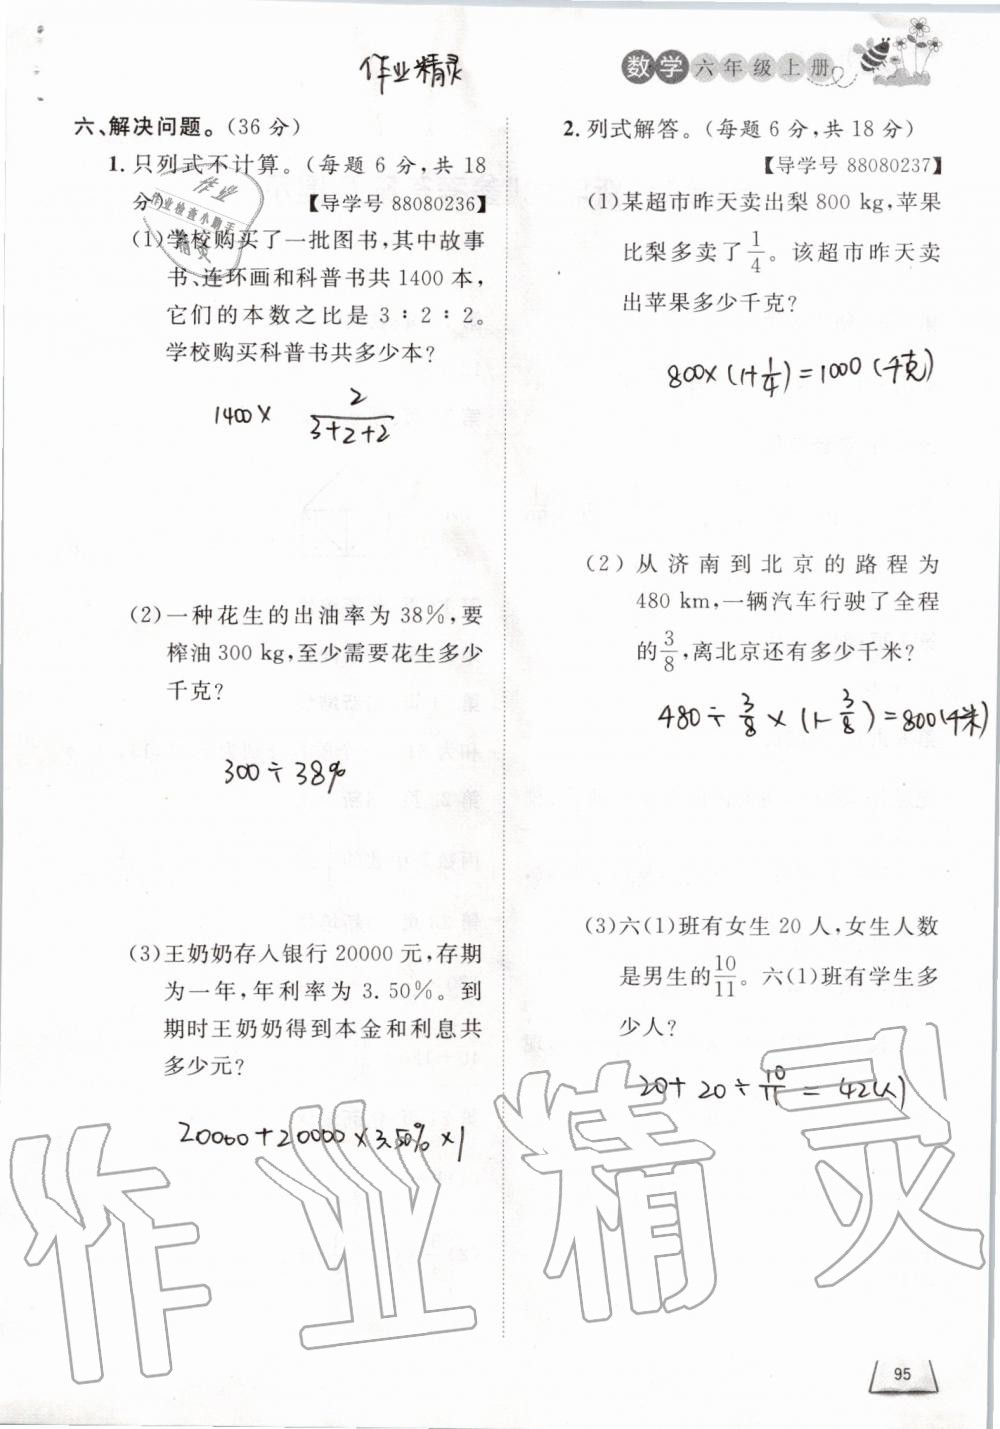 作业精灵
数学六年级上册
六、解决问题。(36分)
1. 只列式不计算。(每题6分,共18
分) 【导学号 88080236】
作业
作业检查小助手
精灵
(1)学校购买了一批图书,其中故事
书、连环画和科普书共1400本,
它们的本数之比是3∶2∶2。
学校购买科普书共多少本?
1400× 2/(3+2+2)
(2)一种花生的出油率为38%,要
榨油300 kg,至少需要花生多少
千克?
300÷38%
(3)王奶奶存入银行20000元,存期
为一年,年利率为3.50%。到
期时王奶奶得到本金和利息共
多少元?
20000+20000×3.50%×1
2. 列式解答。(每题6分,共18分)
【导学号 88080237】
(1)某超市昨天卖出梨800 kg,苹果
比梨多卖了1/4。该超市昨天卖
出苹果多少千克?
800×(1+1/4)=1000(千克)
(2)从济南到北京的路程为
480 km,一辆汽车行驶了全程
的3/8,离北京还有多少千米?
480÷3/8×(1-3/8)=800(千米)
(3)六(1)班有女生20人,女生人数
是男生的10/11。六(1)班有学生多
少人?
20+20÷10/11=42(人)
作业精灵
95